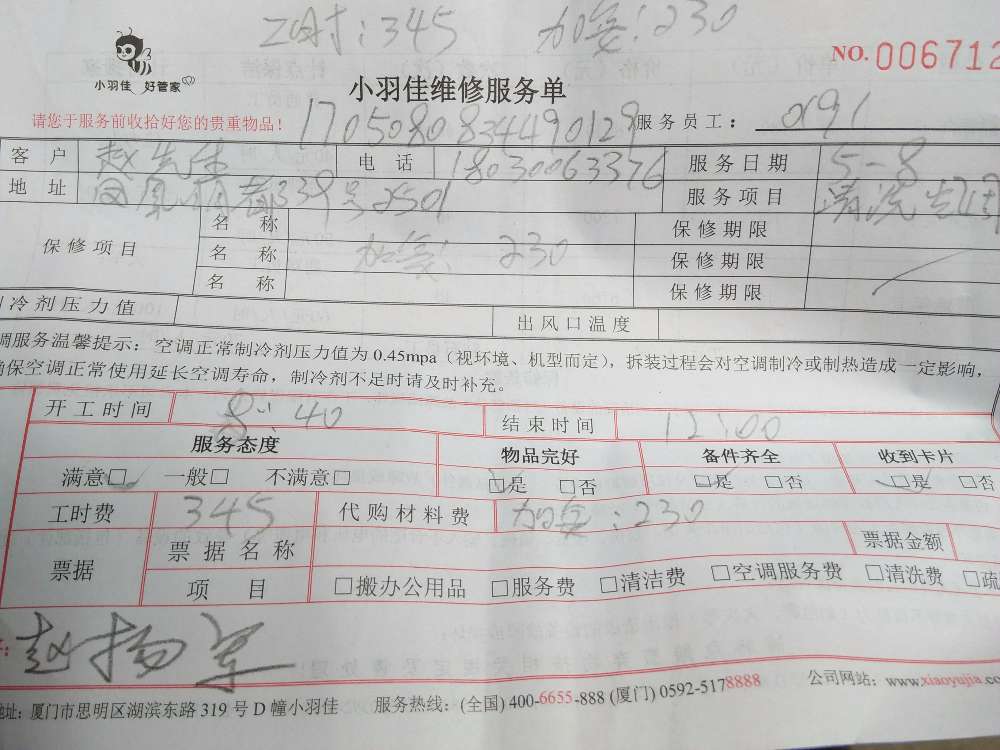 工时:345 加氟:230
NO. 006712
小羽佳 好管家
小羽佳维修服务单
请您于服务前收拾好您的贵重物品!
1705080834490129
服务员工: 0191
客户 赵先生 电话 18030063376 服务日期 5-8
地址 339号2501 服务项目 清洗
保修项目 名称 保修期限
名称 加氟:230 保修期限
名称 保修期限
冷剂压力值 出风口温度
调服务温馨提示:空调正常制冷剂压力值为0.45mpa(视环境、机型而定),拆装过程会对空调制冷或制热造成一定影响,
确保空调正常使用延长空调寿命,制冷剂不足时请及时补充。
开工时间 8:40 结束时间 12:00
服务态度 物品完好 备件齐全 收到卡片
满意□ 一般□ 不满意□ □是 □否 □是 □否 □是 □否
工时费 345 代购材料费 加氟:230
票据 票据名称 票据金额
项目 □搬办公用品 □服务费 □清洁费 □空调服务费 □清洗费 □疏
赵扬军
地址:厦门市思明区湖滨东路319号D幢小羽佳 服务热线:(全国)400-6655-888 (厦门)0592-5178888 公司网站:www.xiaoyujia.com